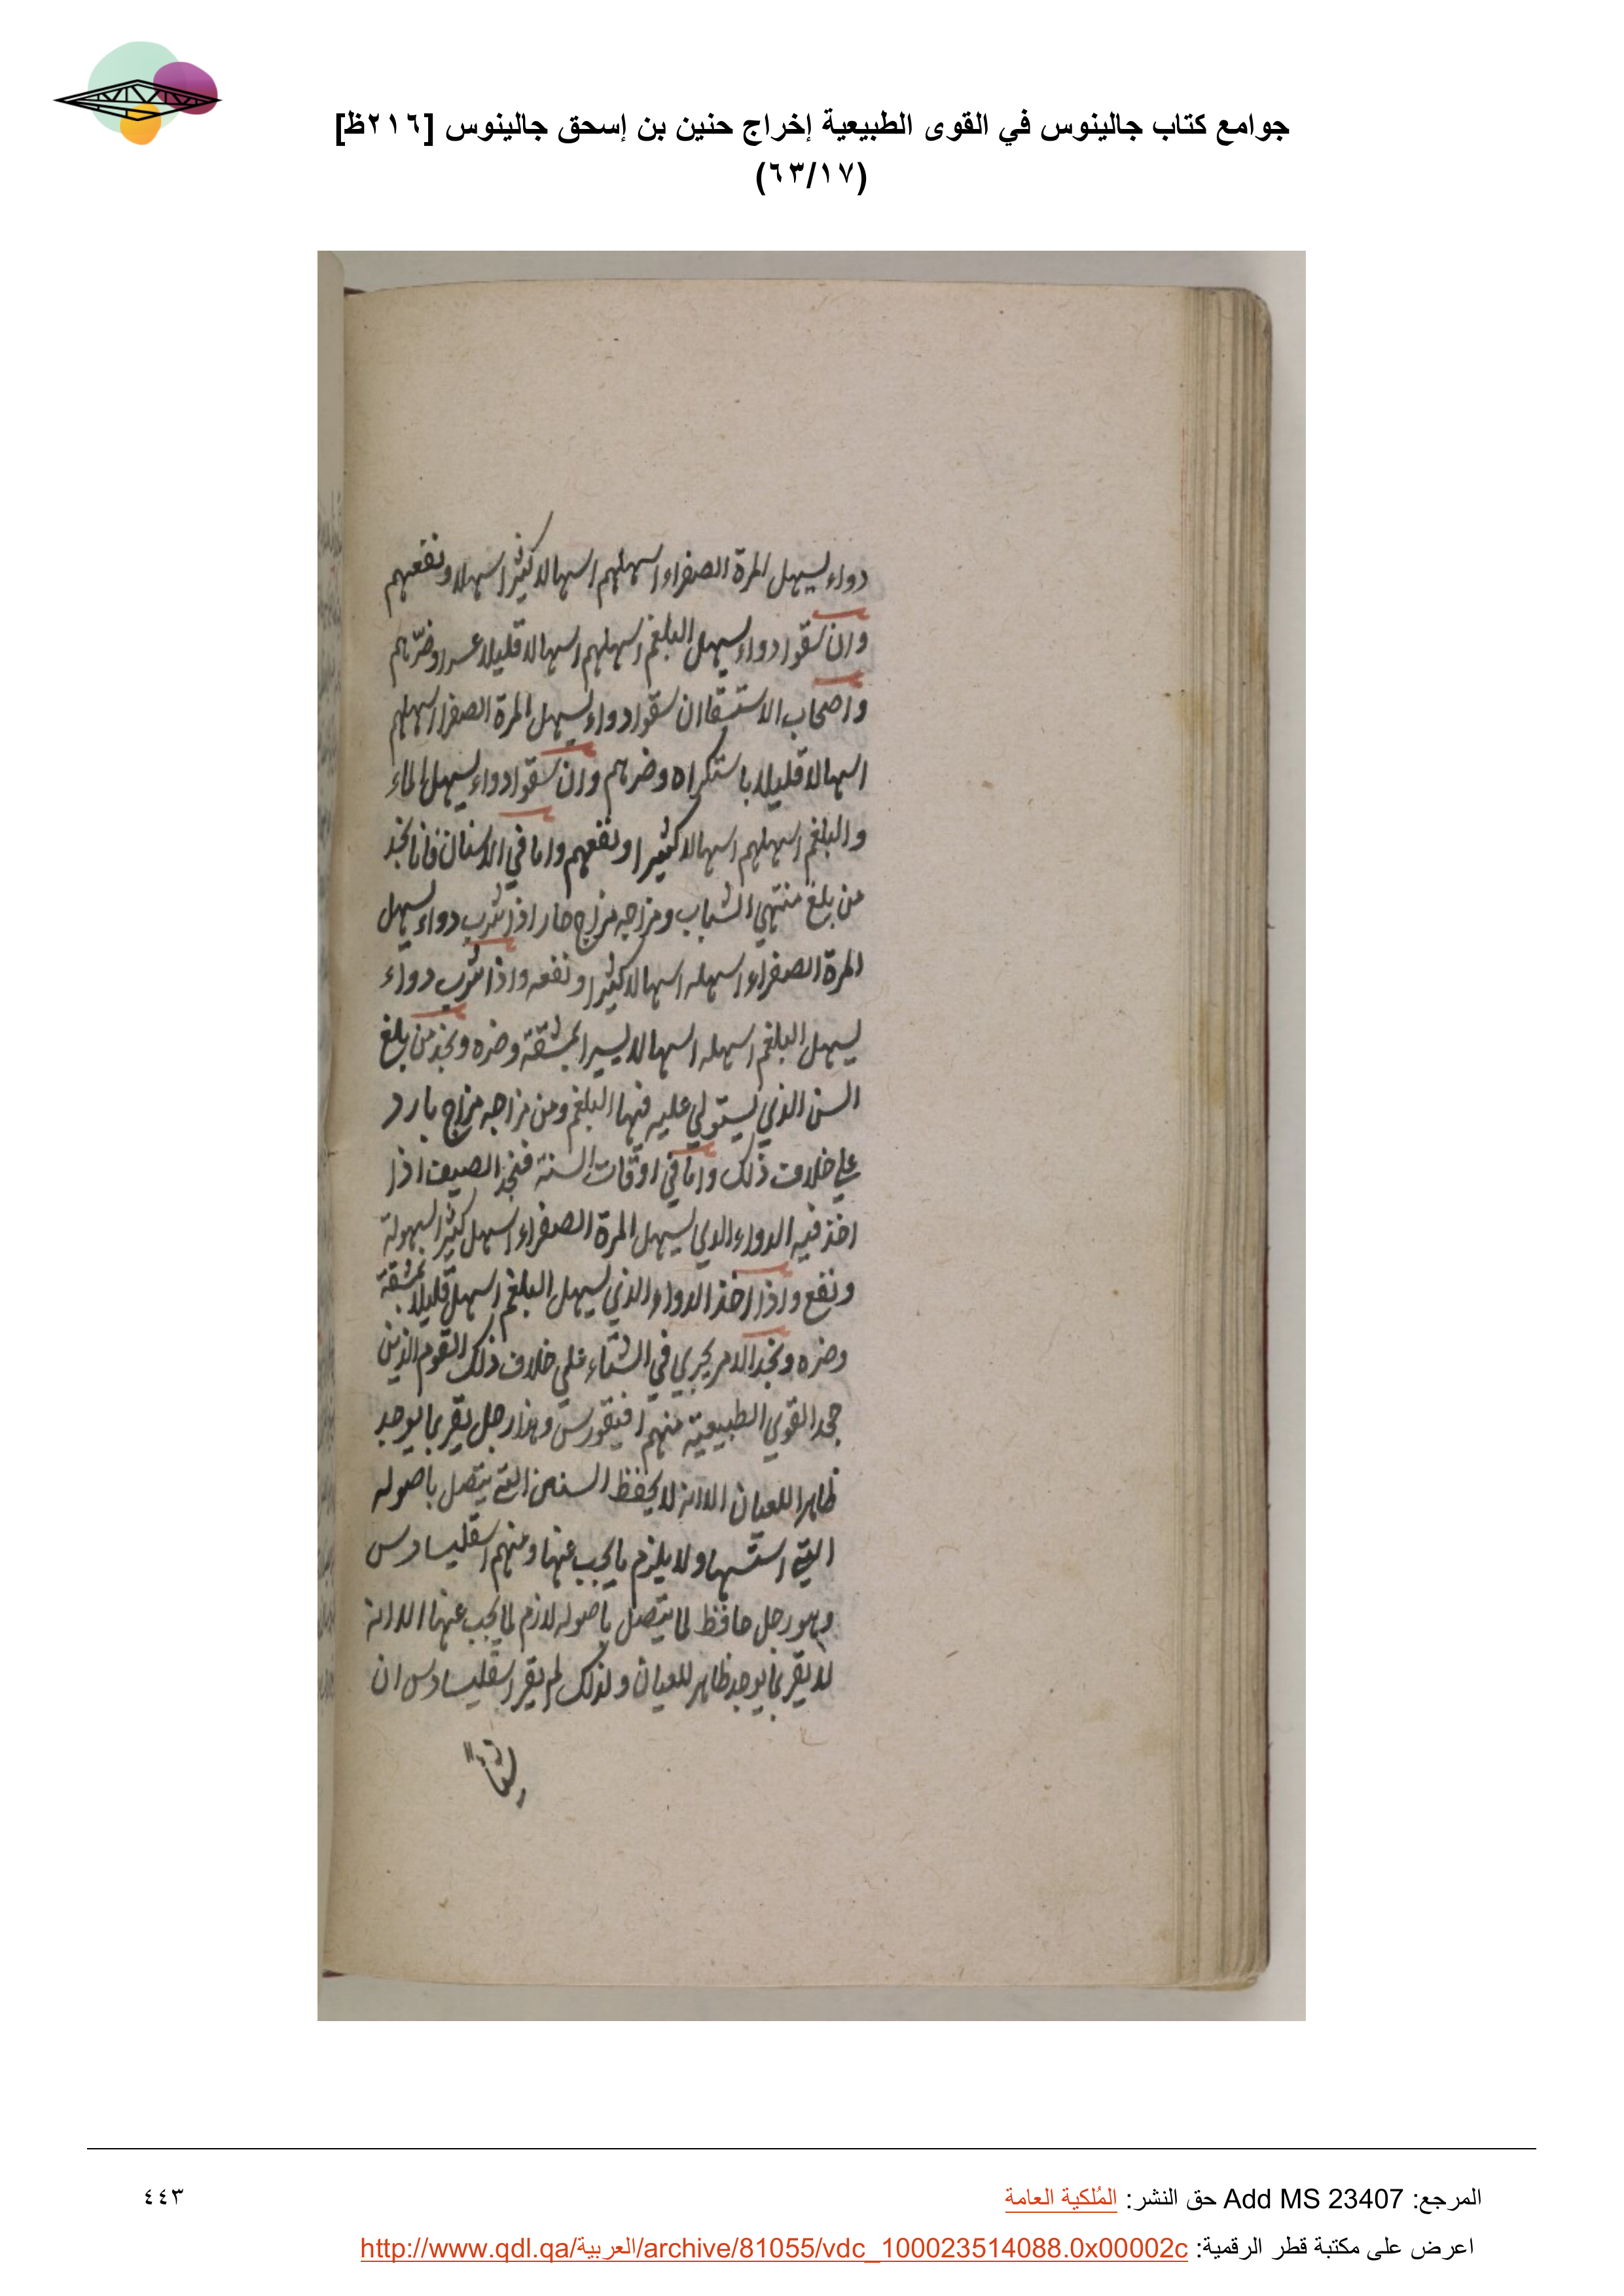 جوامع كتاب جالينوس في القوى الطبيعية إخراج حنين بن إسحق جالينوس [٢١٦ظ]
(٦٣/١٧)
دواء يسهل المرة الصفراء اسهلهم اسهالا كثيرا سهلا ونفعهم
وان سقوا دواء يسهل البلغم اسهلهم اسهالا قليلا عسرا وضرهم
واصحاب الاستسقا ان سقوا دواء يسهل المرة الصفرا اسهلهم
اسهالا قليلا باستكراه وضرهم وان سقوا دواء يسهل الماء
والبلغم اسهلهم اسهالا كثيرا ونفعهم واما في الاسنان فانا نجد
من بلغ منتهي الشباب ومزاجه مزاج حار اذا شرب دواء يسهل
المرة الصفراء اسهله اسهالا كثيرا ونفعه واذا شرب دواء
يسهل البلغم اسهله اسهالا يسيرا بمشقة وضره ونجد من بلغ
السن الذي يستولي عليه فيها البلغم ومن مزاجه مزاج بارد
علي خلاف ذلك واما في اوقات السنة فنجد الصيف اذا
اخذ فيه الدواء الذي يسهل المرة الصفراء اسهل كثيرا بسهولة
ونفع واذا اخذ الدواء الذي يسهل البلغم اسهل قليلا بمشقة
وضره ونجد الامر يجري في الشتاء علي خلاف ذلك القوم الذين
جحد القوي الطبيعية منهم افيقورس وهذا رجل يقر بما يوجد
ظاهرا للعيان الا انه لا يحفظ السنن التي يتصل باصوله
التي اسسها ولا يلزم ما يجب عنها ومنهم اسقليبيادس
وهو رجل حافظ لما يتصل باصوله لازم لما يجب عنها الا انه
لا يقر بما يوجد ظاهر للعيان ولذلك لم يقر اسقليبيادس ان
المرجع: Add MS 23407 حق النشر: المُلكية العامة
٤٤٣
اعرض على مكتبة قطر الرقمية: http://www.qdl.qa/العربية/archive/81055/vdc_100023514088.0x00002c